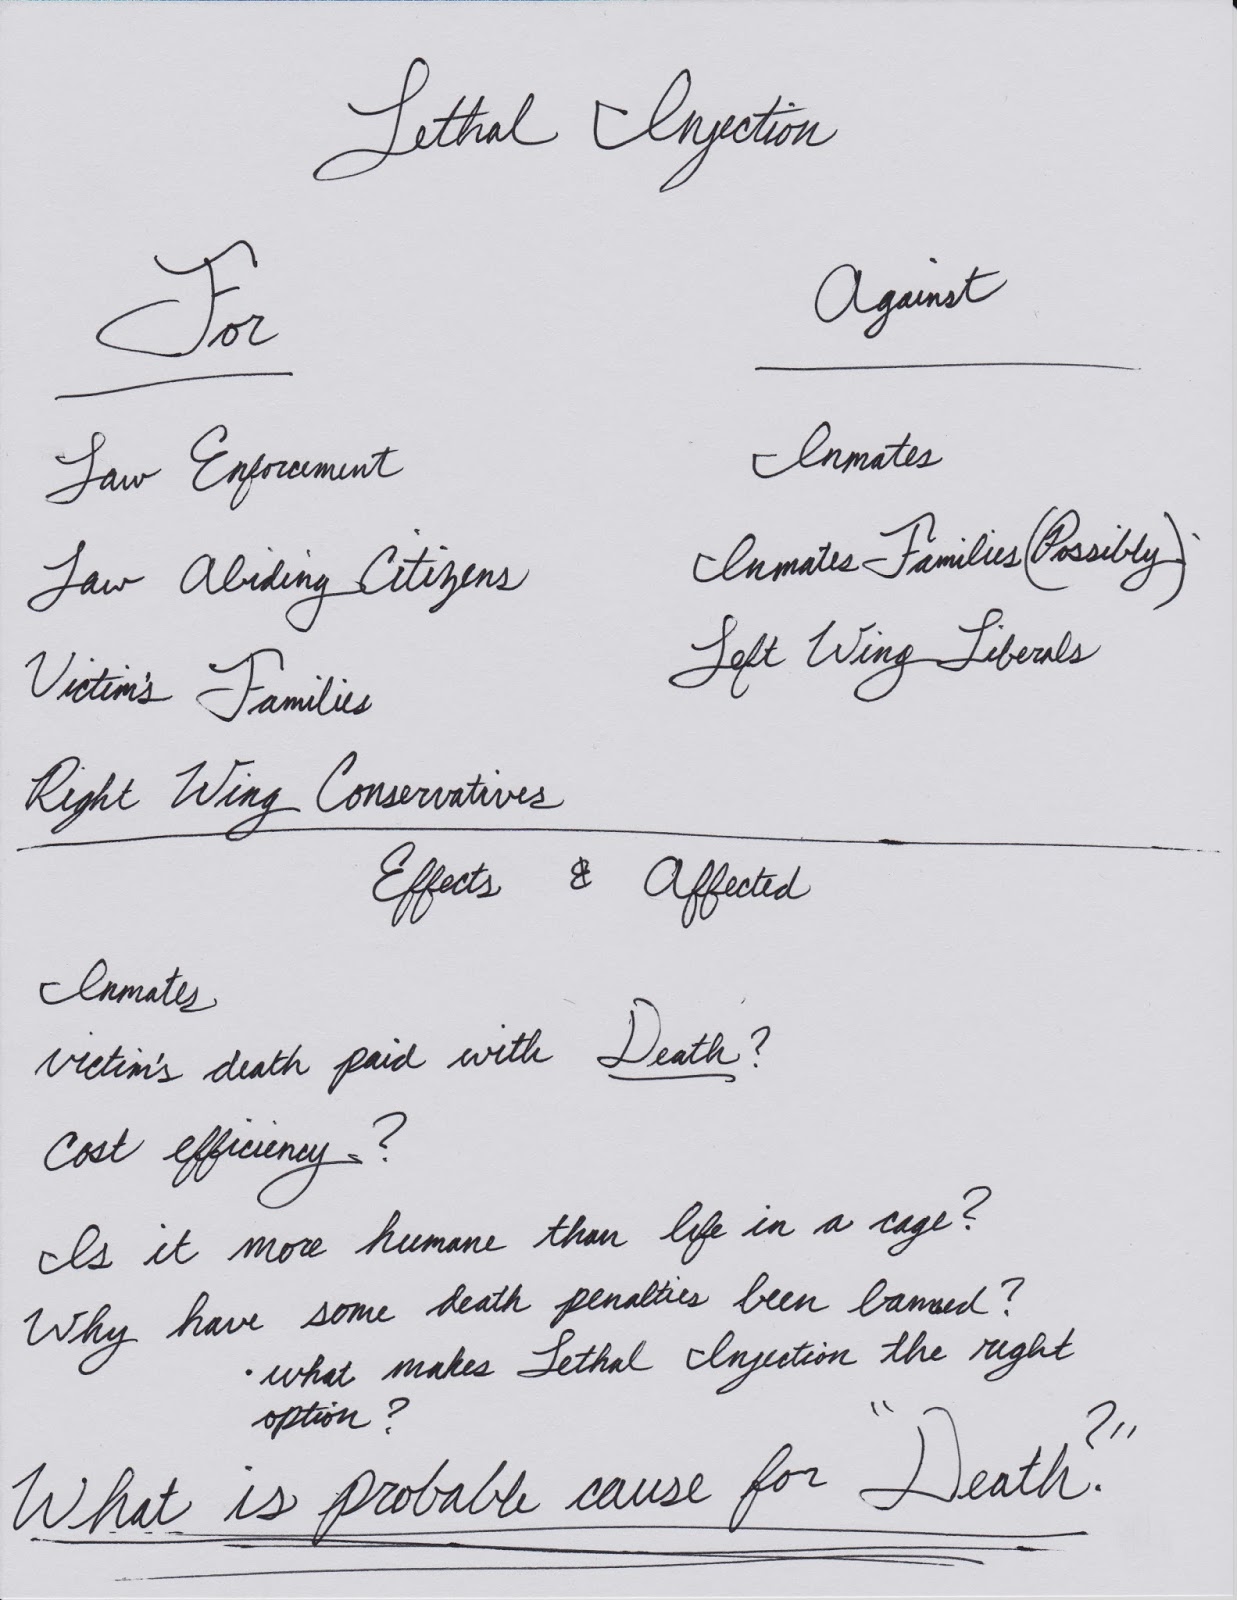 Lethal Injection
For Against
Law Enforcement Inmates
Law Abiding Citizens Inmates Families (Possibly)
Victim's Families Left Wing Liberals
Right Wing Conservatives
Effects & Affected
Inmates
victim's death paid with Death?
Cost efficiency.?
Is it more humane than life in a cage?
Why have some death penalties been banned?
· what makes Lethal Injection the right
option?
What is probable cause for "Death?"